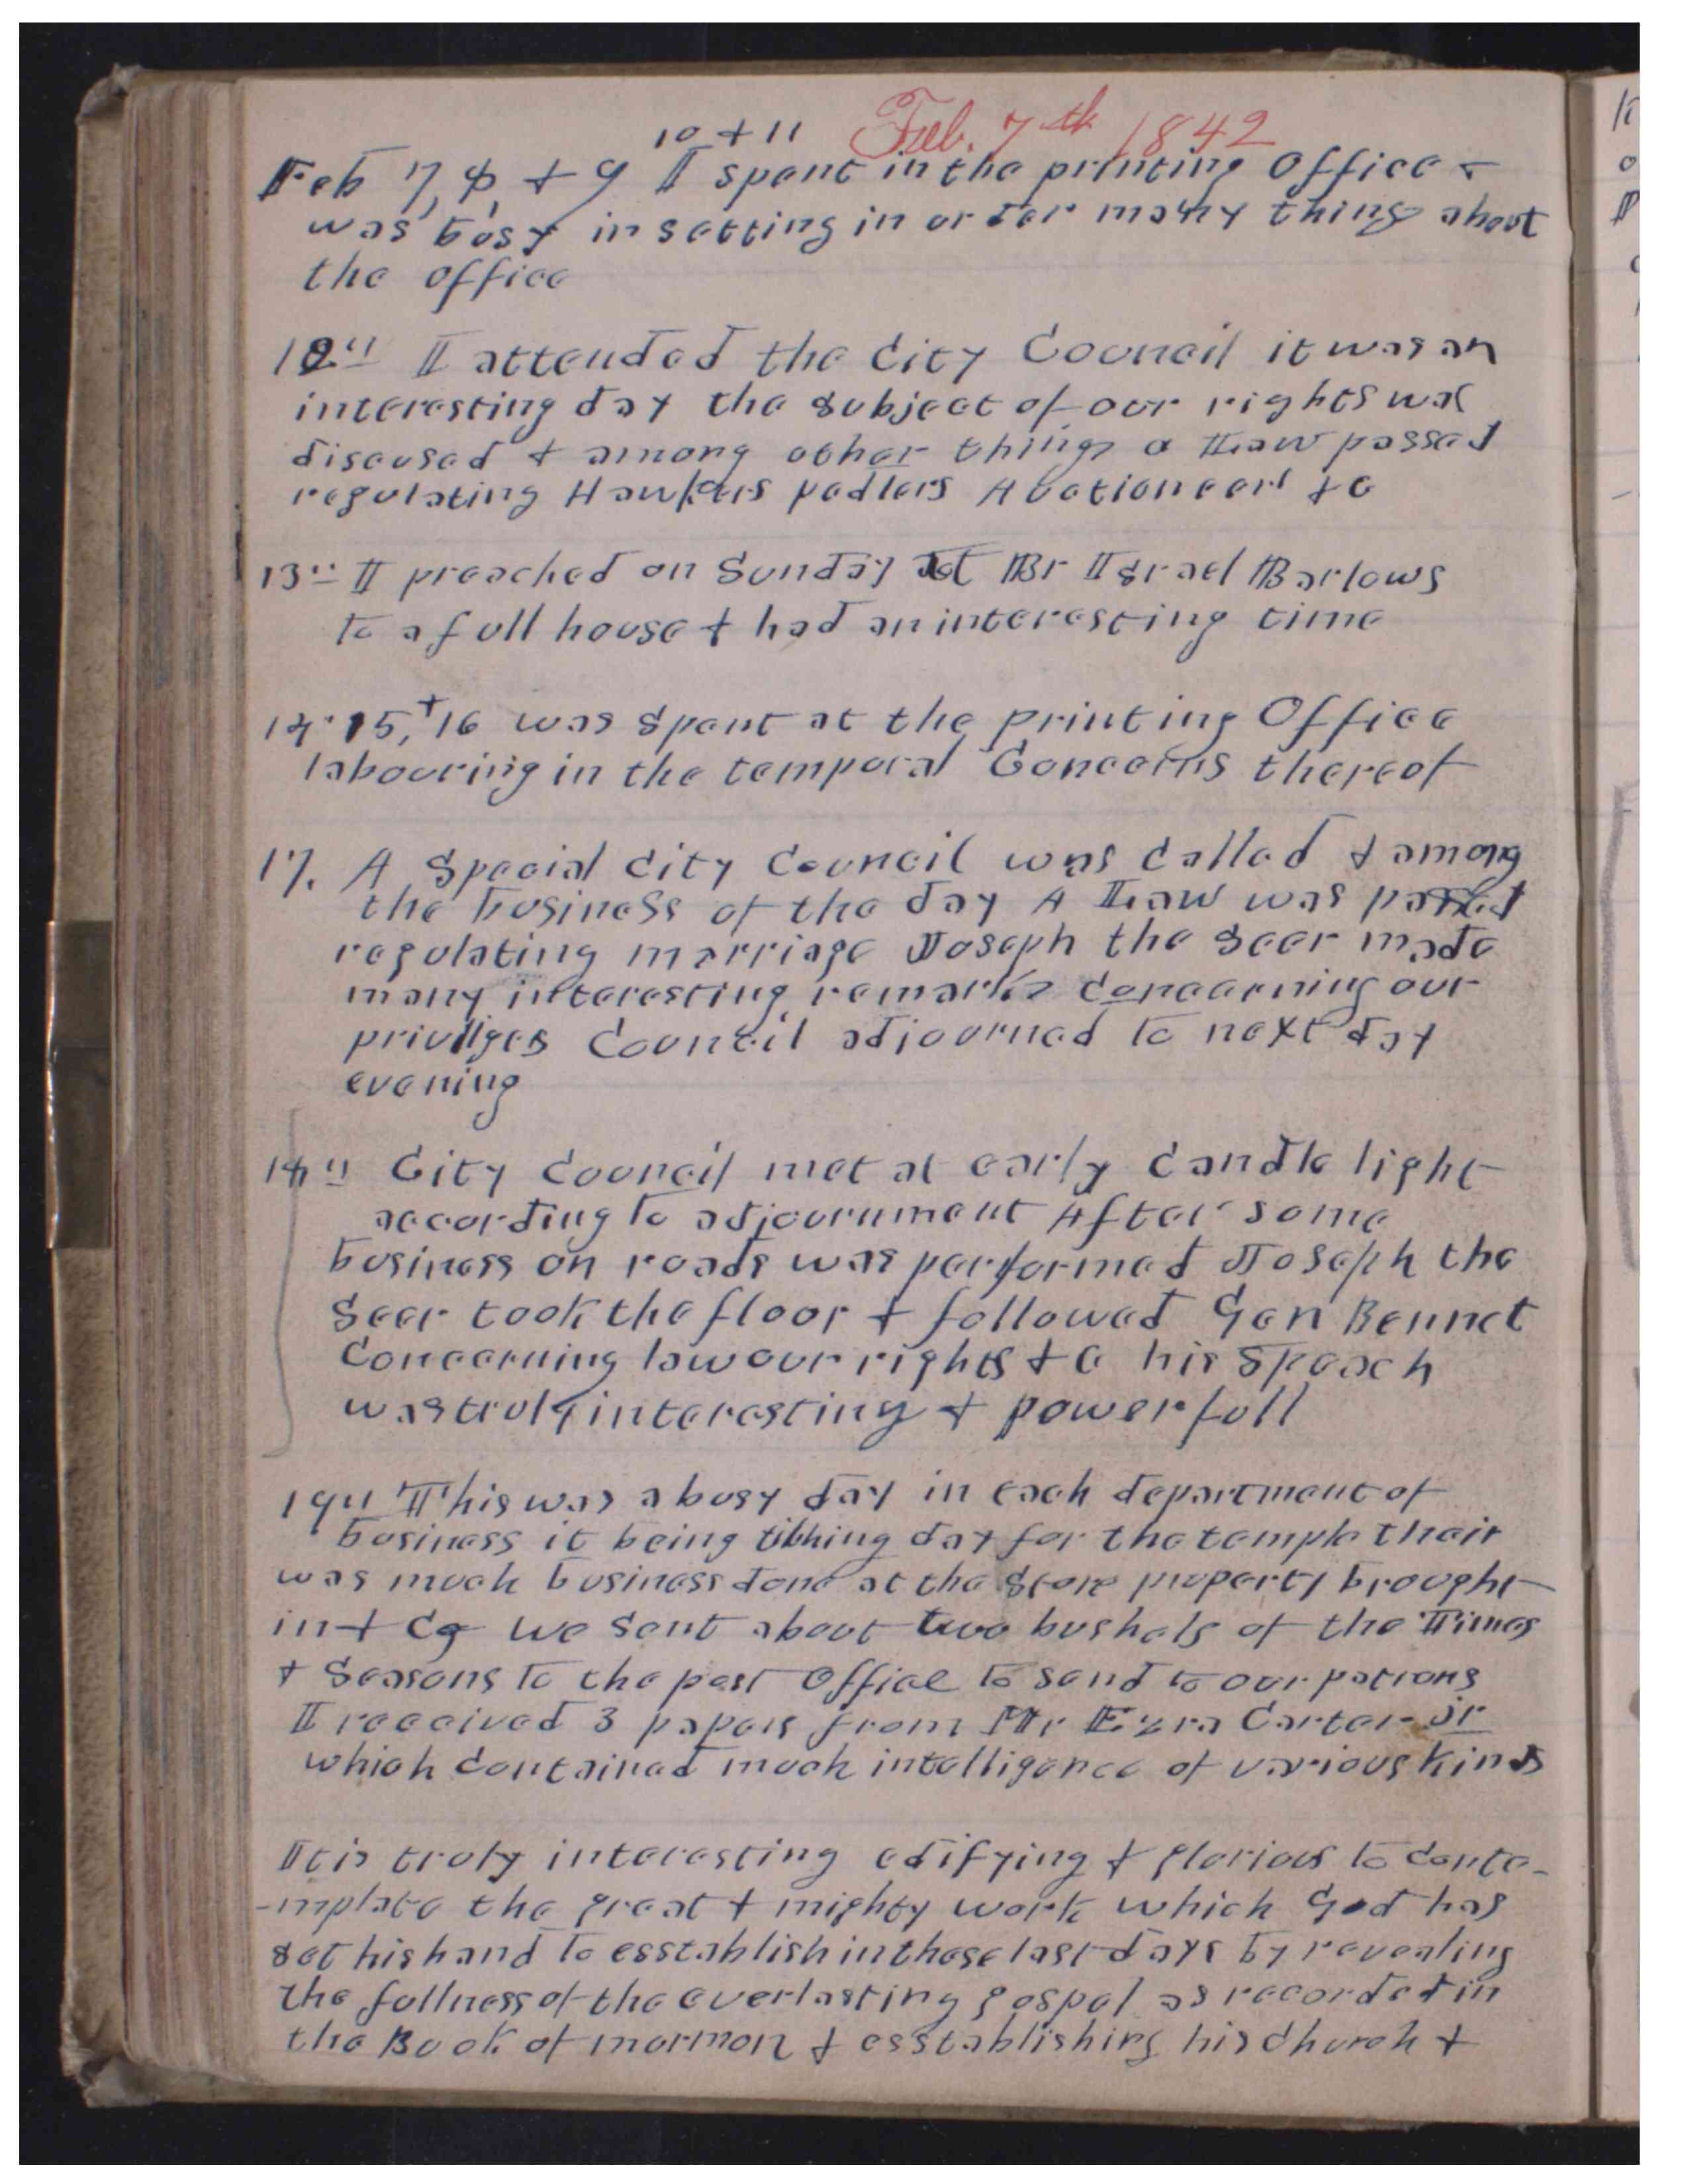 Feb. 7th 1842
10 + 11
Feb 7, 8, + 9 I spent in the printing Office +
was busy in setting in order many things about
the office
12" I attended the City Council it was an
interesting day the subject of our rights was
discused + among other things a Law passed
regulating Hawkers pedlers Auctioneers + c
13" I preached on Sunday at Br Israel Barlows
to a full house + had an interesting time
14. 15, + 16 was spent at the printing Office
labouring in the temporal Concerns thereof
17. A Special City Council was called + among
the business of the day A Law was passed
regulating marriage Joseph the Seer made
many interesting remarks concerning our
privileges Council adjourned to next day
evening
18" City Council met at early candle light
according to adjournment After some
business on roads was performed Joseph the
Seer took the floor + followed Gen Bennet
concerning law our rights + c his speech
was truly interesting + powerfull
19" This was a busy day in each department of
business it being tithing day for the temple their
was much business done at the store property brought
in + c we sent about two bushels of the Times
+ Seasons to the post Office to send to our patrons
I received 3 papers from Mr Ezra Carter jr
which contained much intelligence of various kinds
It is truly interesting edifying + glorious to conte-
-mplate the great + mighty work which God has
set his hand to esstablish in these last days by revealing
the fullness of the everlasting gospel as recorded in
the Book of mormon + esstablishing his church +